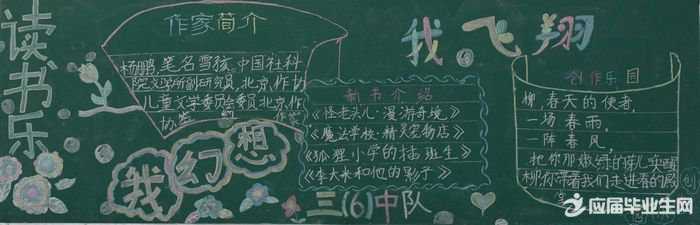 读书乐
作家简介
杨鹏,笔名雪孩,中国社科
院文学所副研究员,北京,作协
儿童文学委员会委员,北京,作
协签约作家
我幻想
新书介绍
《怪老头儿·漫游奇境》
《魔法学校·精灵宠物店》
《狐狸小学的插班生》
《李大米和他的影子》
三(6)中队
我飞翔
创作乐园
柳,春天的使者,
一场春雨,
一阵春风,
把你那嫩绿的芽儿
柳,你带着我们走进春的
应届毕业生网